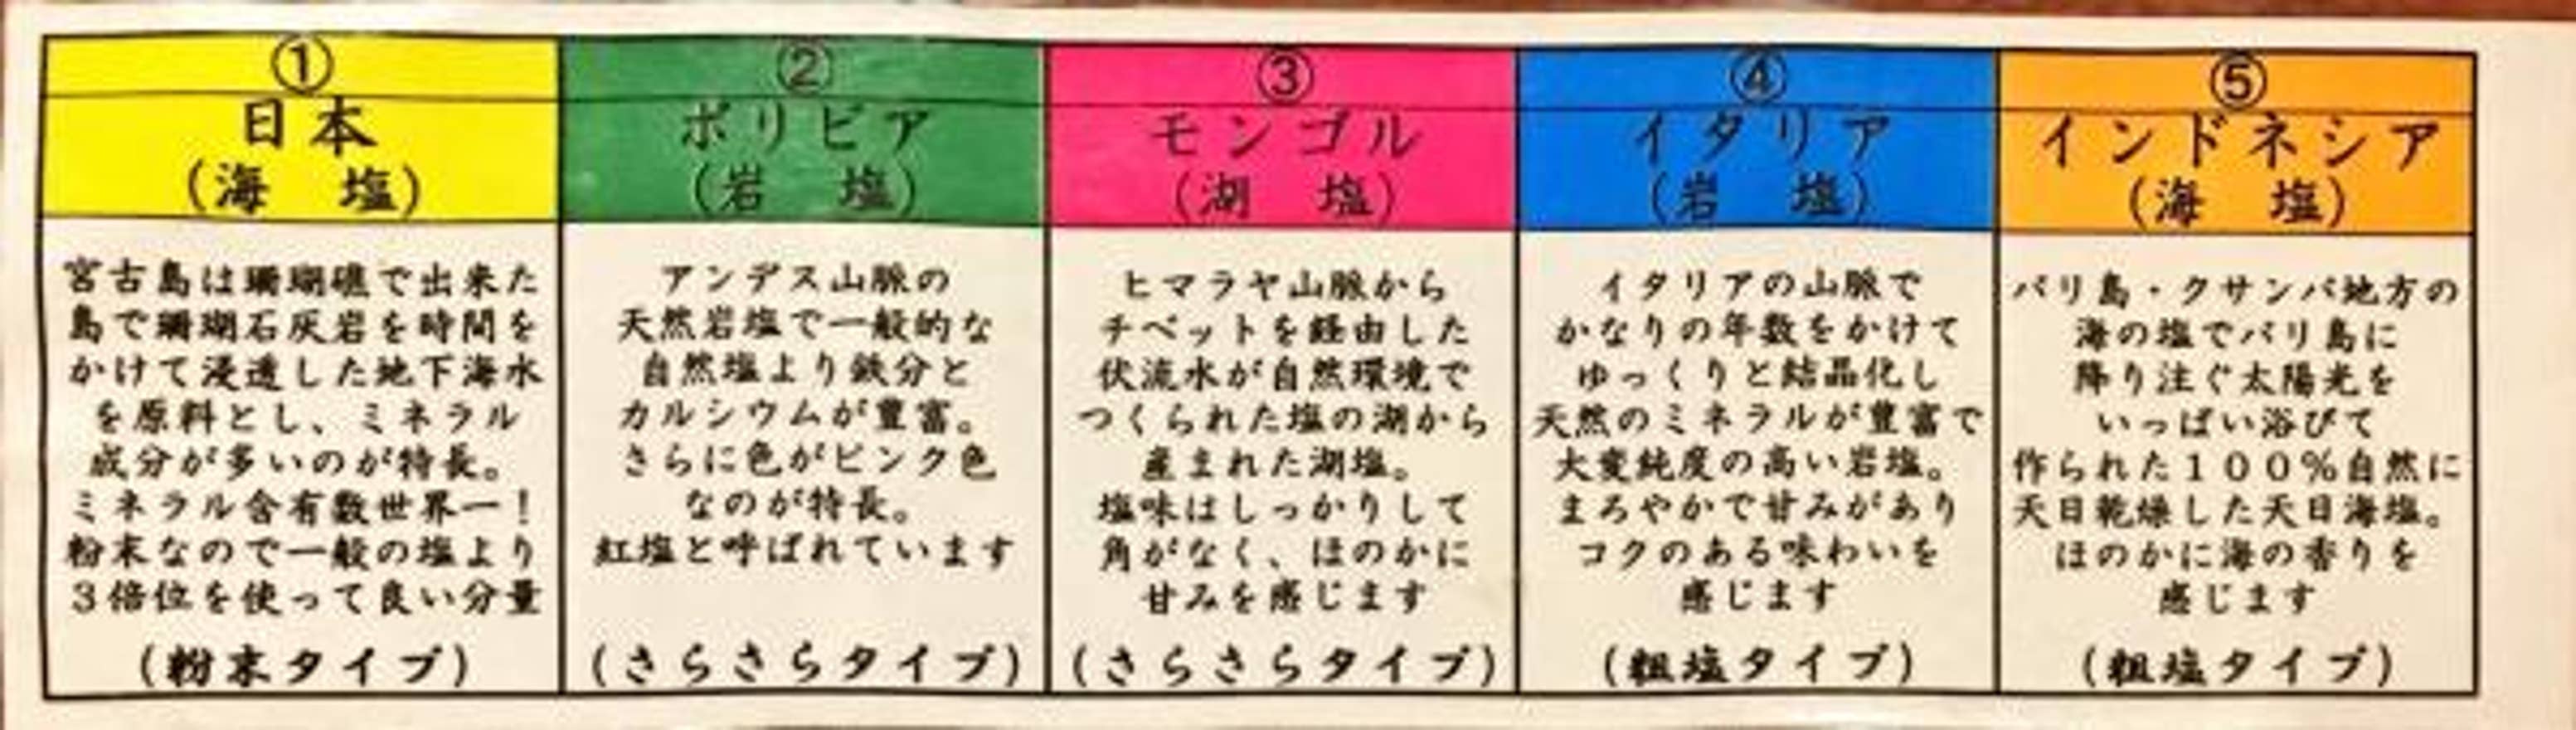 ①
日本
(海　塩)
宮古島は珊瑚礁で出来た
島で珊瑚石灰岩を時間を
かけて浸透した地下海水
を原料とし、ミネラル
成分が多いのが特長。
ミネラル含有数世界一！
粉末なので一般の塩より
３倍位を使って良い分量
(粉末タイプ)
②
ボリビア
(岩　塩)
アンデス山脈の
天然岩塩で一般的な
自然塩より鉄分と
カルシウムが豊富。
さらに色がピンク色
なのが特長。
紅塩と呼ばれています
(さらさらタイプ)
③
モンゴル
(湖　塩)
ヒマラヤ山脈から
チベットを経由した
伏流水が自然環境で
つくられた塩の湖から
産まれた湖塩。
塩味はしっかりして
角がなく、ほのかに
甘みを感じます
(さらさらタイプ)
④
イタリア
(岩　塩)
イタリアの山脈で
かなりの年数をかけて
ゆっくりと結晶化し
天然のミネラルが豊富で
大変純度の高い岩塩。
まろやかで甘みがあり
コクのある味わいを
感じます
(粗塩タイプ)
⑤
インドネシア
(海　塩)
バリ島・クサンバ地方の
海の塩でバリ島に
降り注ぐ太陽光を
いっぱい浴びて
作られた１００％自然に
天日乾燥した天日海塩。
ほのかに海の香りを
感じます
(粗塩タイプ)